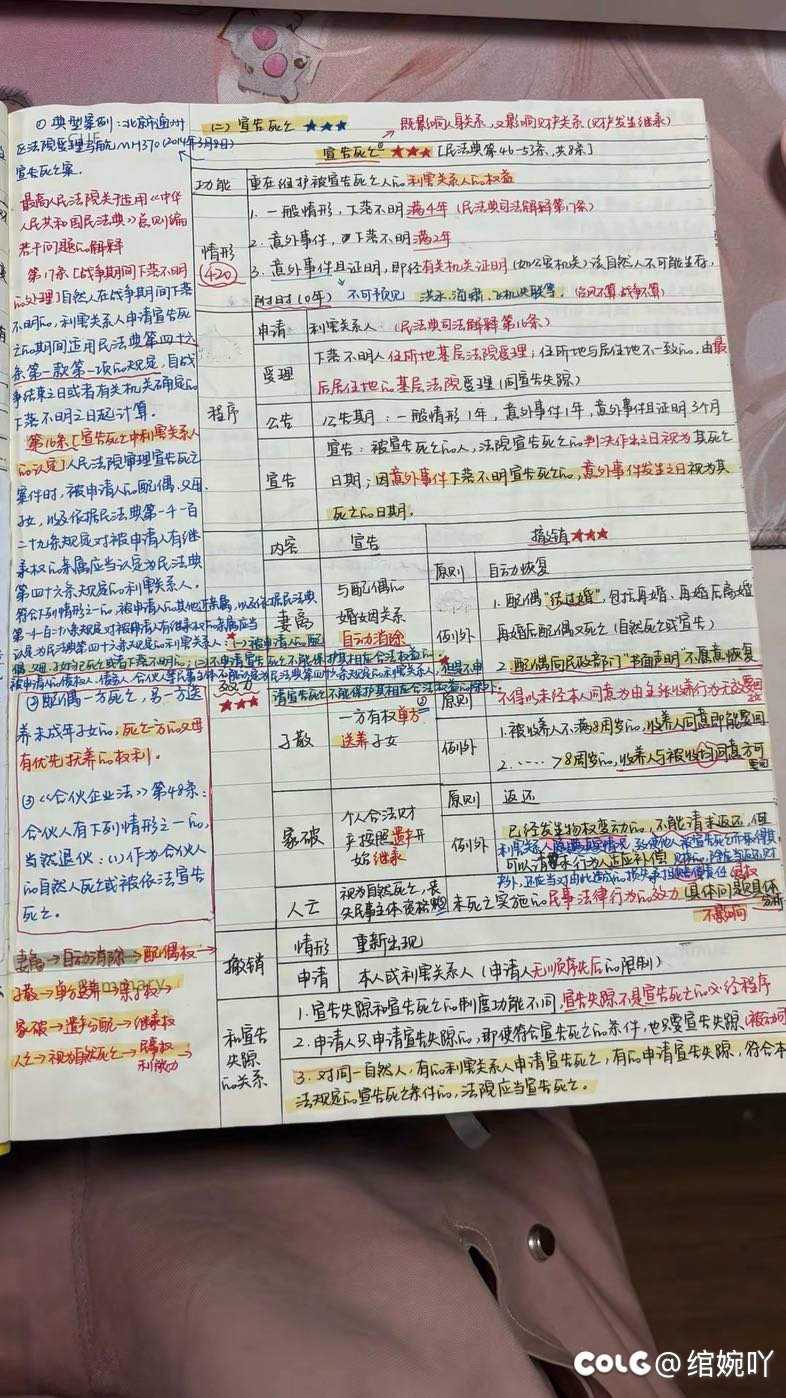 ①典型案例:北京市通州
区法院受理马航MH370(2014年3月8日)
宣告死亡案.
最高人民法院关于适用《中华
人民共和国民法典》总则编
若干问题的解释
第17条[战争期间下落不明
的处理]自然人在战争期间下落
不明的,利害关系人申请宣告死
亡的期间适用民法典第四十六
条第一款第一项的规定,自战
争结束之日或者有关机关确定的
下落不明之日起计算.
第16条[宣告死亡中利害关系人
的认定]人民法院审理宣告死亡
案件时,被申请人的配偶、父母、
子女,以及依据民法典第一千一百
二十九条规定对被申请人有继
承权的亲属应当认定为民法典
第四十六条规定的利害关系人.
符合下列情形之一的,被申请人的其他近亲属,以及依据民法典
第一千一百二十八条规定对被申请人有继承权的亲属应当
认定为民法典第四十六条规定的利害关系人:★(一)被申请人的配
偶、父母、子女均已死亡或者下落不明的;(二)不申请宣告死亡不能保护其相应合法权益的.
被申请人的债权人、债务人、合伙人等民事主体不能认定为民法典第四十六条规定的利害关系人,但是不申
请宣告死亡不能保护其相应合法权益的除外.
②配偶一方死亡,另一方送
养未成年子女的,死亡一方的父母
有优先抚养的权利.
③《合伙企业法》第48条:
合伙人有下列情形之一的,
当然退伙:(1)作为合伙人
的自然人死亡或被依法宣告
死亡。
妻离→自动消除→配偶权→
子散→单方送养→亲子权→
家破→遗产分配→继承权
人亡→视为自然死亡→民事权
利能力→
(二)宣告死亡★★★ 既影响人身关系,又影响财产关系(财产发生继承)
宣告死亡①★★★[民法典第46-53条,共8条]
功能 重在维护被宣告死亡人的利害关系人的权益
情形
(420)
1.一般情形,下落不明满4年(民法典司法解释第17条)
2.意外事件,下落不明满2年
3.意外事件且证明,即经有关机关证明(如公安机关)该自然人不可能生存,
随时(0年) 不可预见 洪水、海啸、飞机失联等.(台风不算,战争不算)
程序
申请 利害关系人 (民法典司法解释第16条)
受理 下落不明人住所地基层法院受理;住所地与居住地不一致的,由最
后居住地的基层法院受理(同宣告失踪)
公告 公告期:一般情形1年,意外事件1年,意外事件且证明3个月
宣告 宣告:被宣告死亡的人,法院宣告死亡的判决作出之日视为其死亡
日期;因意外事件下落不明宣告死亡的,意外事件发生之日视为其
死亡的日期.
效力
★★★
内容 宣告 撤销★★★
妻离 与配偶的
婚姻关系
自动消除
原则 自动恢复
例外 1.配偶"结过婚",包括再婚、再婚后离婚
再婚后配偶又死亡(自然死亡或宣告)
2.配偶向民政部门"书面声明"不愿意恢复
子散 一方有权单方②
送养子女
原则 不得以未经本人同意为由主张收养行为无效要回
例外 1.被收养人不满8周岁的,收养人同意即能要回
2.……>8周岁的,收养人与被收养人均同意方可
要回
家破 个人合法财
产按照遗产开
始继承
原则 返还
例外 已经发生物权变动的,不能请求返还,但
可以请求行为人适应补偿
利害关系人隐瞒真实情况,致使他人被宣告死亡而取得其
财产的,除应当返还财
产外,还应当对由此造成的损失承担赔偿责任
人亡 视为自然死亡,丧
失民事主体资格
未死亡实施的民事法律行为的效力 具体问题具体
分析
不影响
撤销 情形 重新出现
申请 本人或利害关系人(申请人无顺序先后的限制)
和宣告
失踪
的关系
1.宣告失踪和宣告死亡的制度功能不同,宣告失踪不是宣告死亡的必经程序
2.申请人只申请宣告失踪的,即使符合宣告死亡的条件,也只要宣告失踪
3.对同一自然人,有的利害关系人申请宣告死亡,有的申请宣告失踪,符合本
法规定的宣告死亡条件的,法院应当宣告死亡.
COLG@绾婉吖